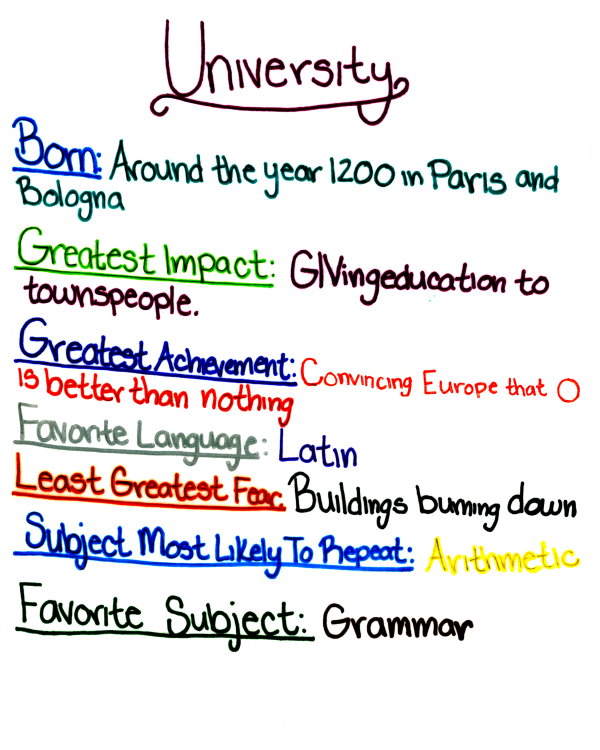 University
Born: Around the year 1200 in Paris and
Bologna
Greatest Impact: GIVingeducation to
townspeople.
Greatest Achievement: Convincing Europe that O
is better than nothing
Favorite Language: Latin
Least Greatest Fear: Buildings burning down
Subject Most Likely To Repeat: Arithmetic
Favorite Subject: Grammar